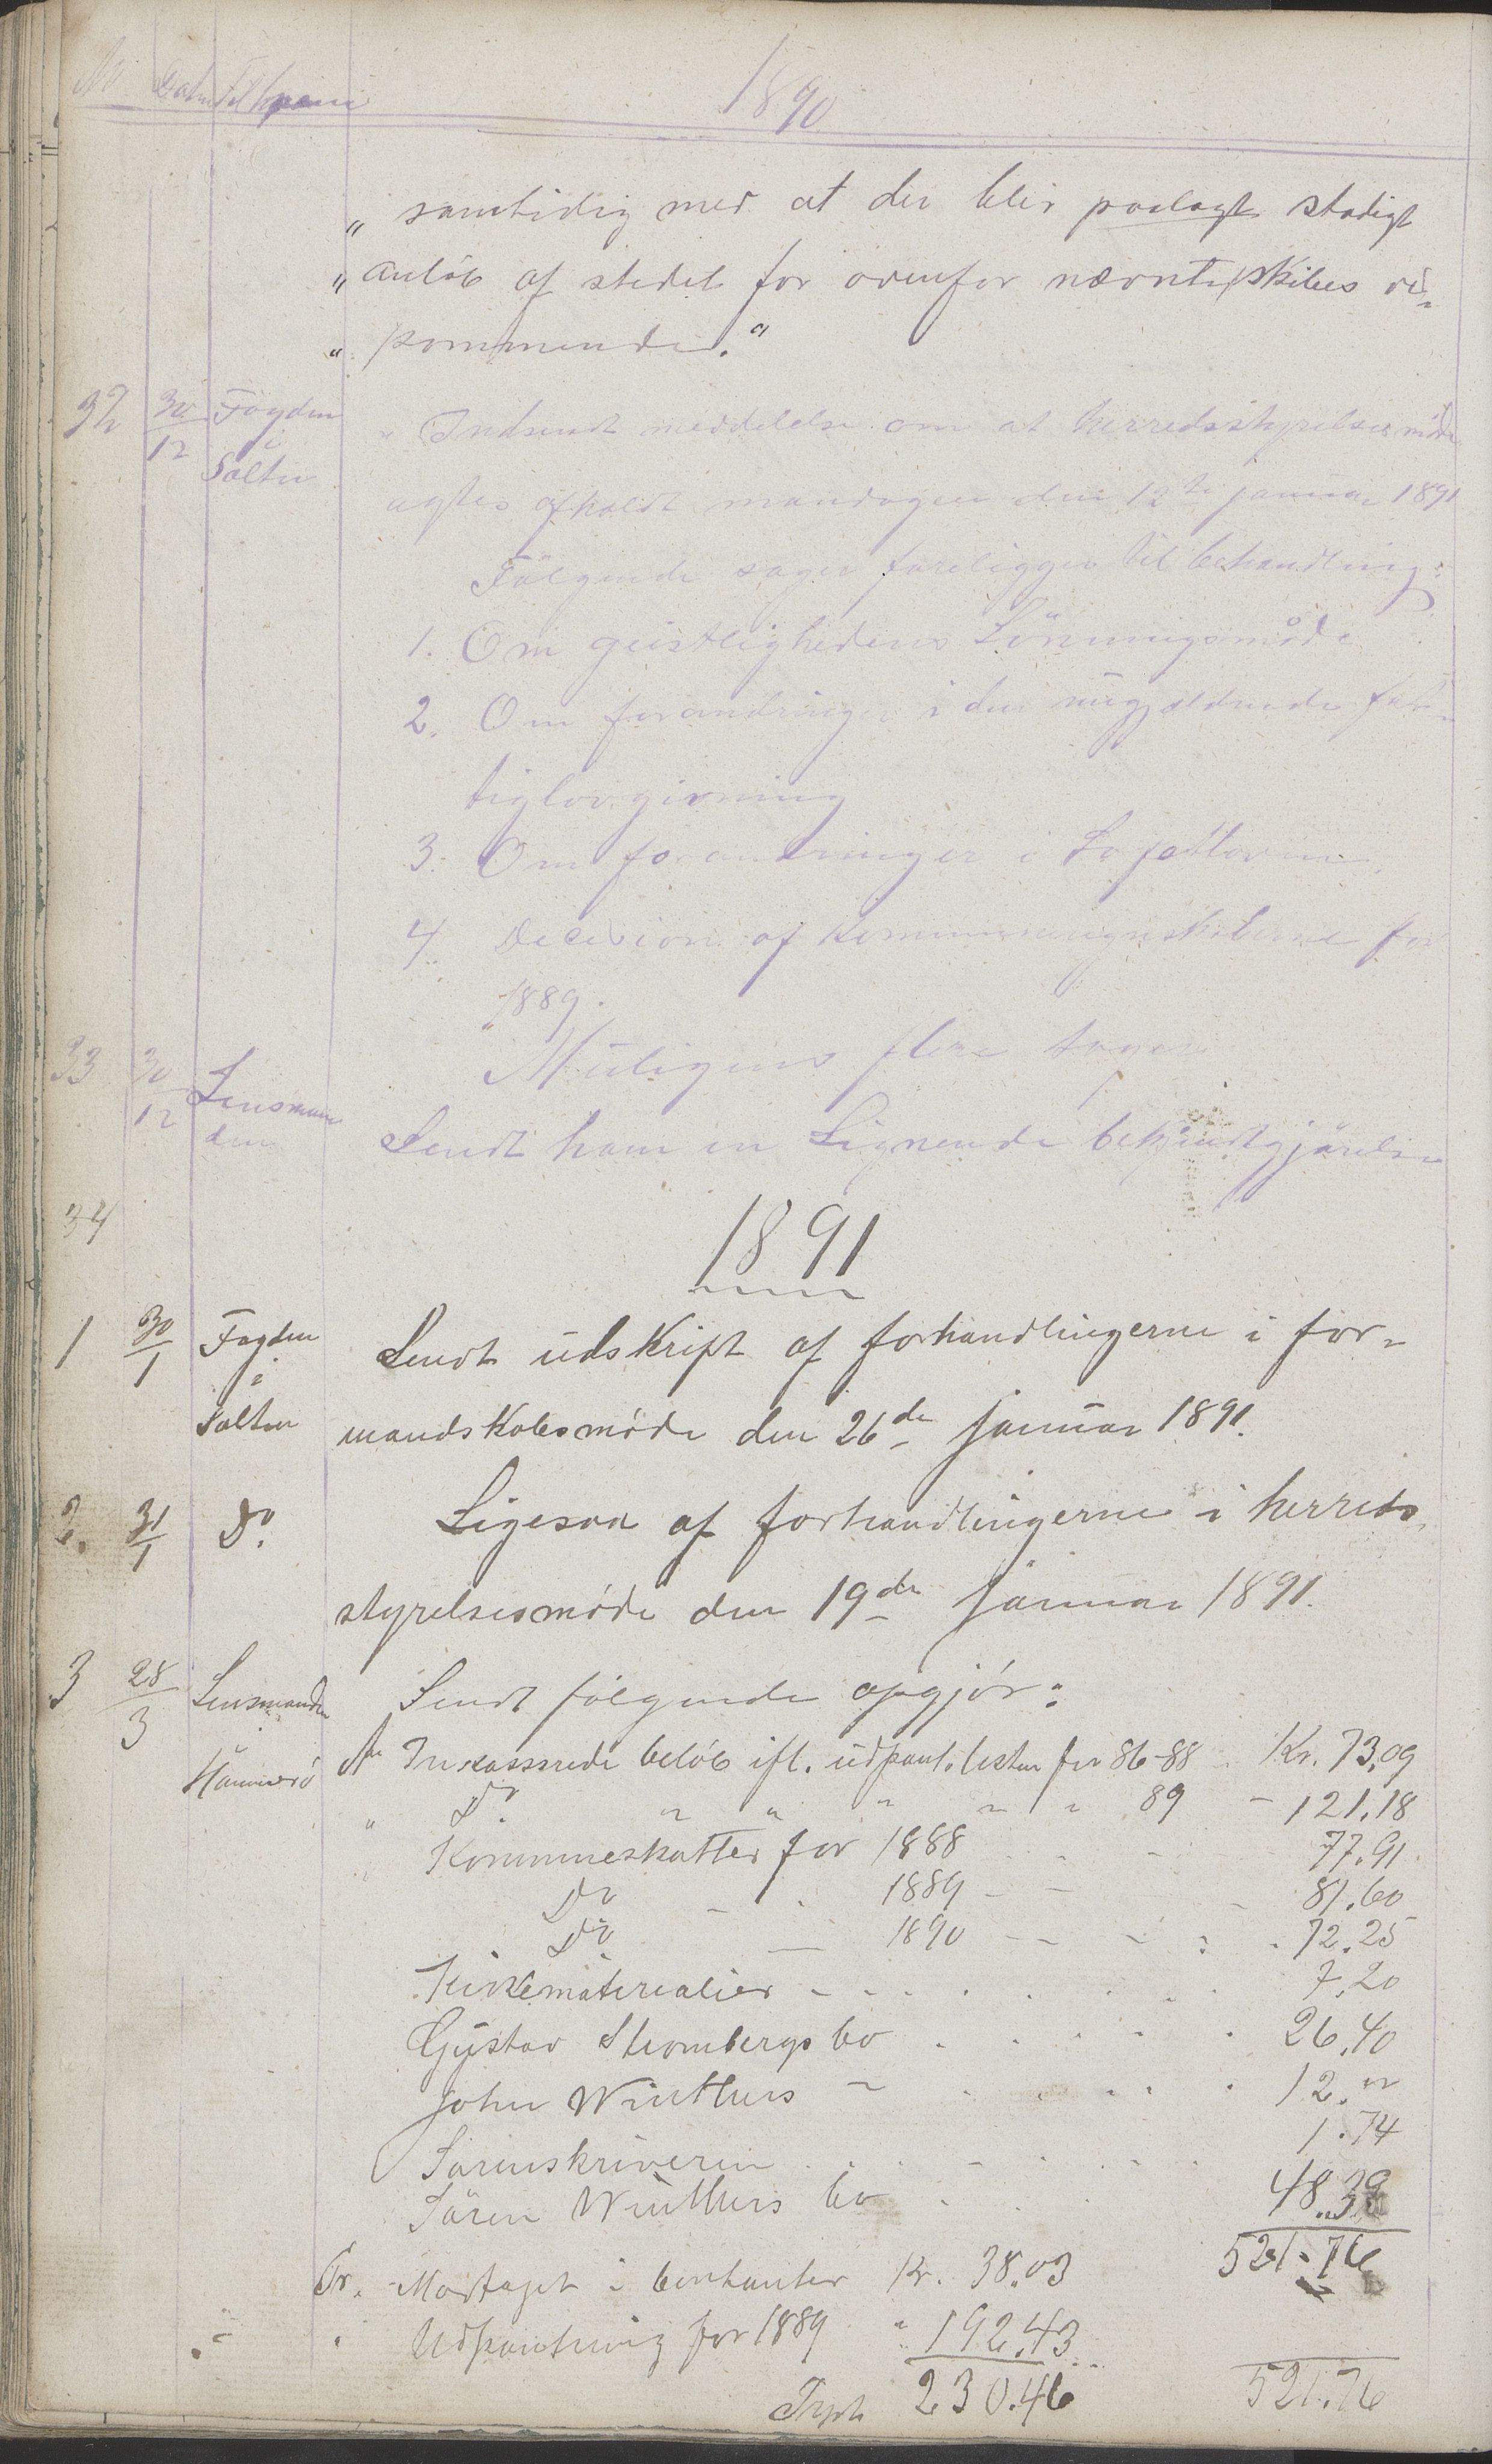 No Datum Til hvem
1890
„ samtidig med at der blir paalagt stadigt
„ anløb af stedet for ovenfor nævnte skibes ved-
„ kommende."
32 30/12 Fogden i Salten
Indsendt meddelelse om at herredsstyrelsesmøde
agtes afholdt mandagen den 12te januar 1891
Følgende sager foreligger til behandling:
1. Om geistlighedens Lönningsmåde
2. Om forandringer i den nugjældende fat-
tiglovgivning
3. Om forandringer i
4. Decision af kommuneregnskaberne for
1889.
Muligens flere sager
33 30/12 Lensmanden
Sendt ham en Lignende bekjendtgjørelse
34
1891
1 30/1 Fogden i Salten
Sendt udskript af forhandlingerne i for-
mandskabsmøde den 26de januar 1891.
2. 31/1 Do.
Ligesaa af forhandlingerne i herreds-
styrelsesmøde den 19de januar 1891.
3 28/3 Lensmanden Hammerö
Sendt følgende opgjør:
An Inkasserede beløb ifl. udpant.listen for 86-88 Kr. 73,09
" Do. " " " " " 89 - 121.18
Kommuneskatter for 1888 77.91
Do 1889 - - 81.60
Do 1890 - - 72.25
Kirkematerialier - - - 7.20
Gustav Strombergs bo 26.40
John Winthers - 12."
Sorenskriveren 1.74
Sören Winthers bo 48.39
521.76
Pr. Modtaget i contanter Kr. 38.03
" Udpantning for 1889 " 192.43
Trsp. 230.46 521.76